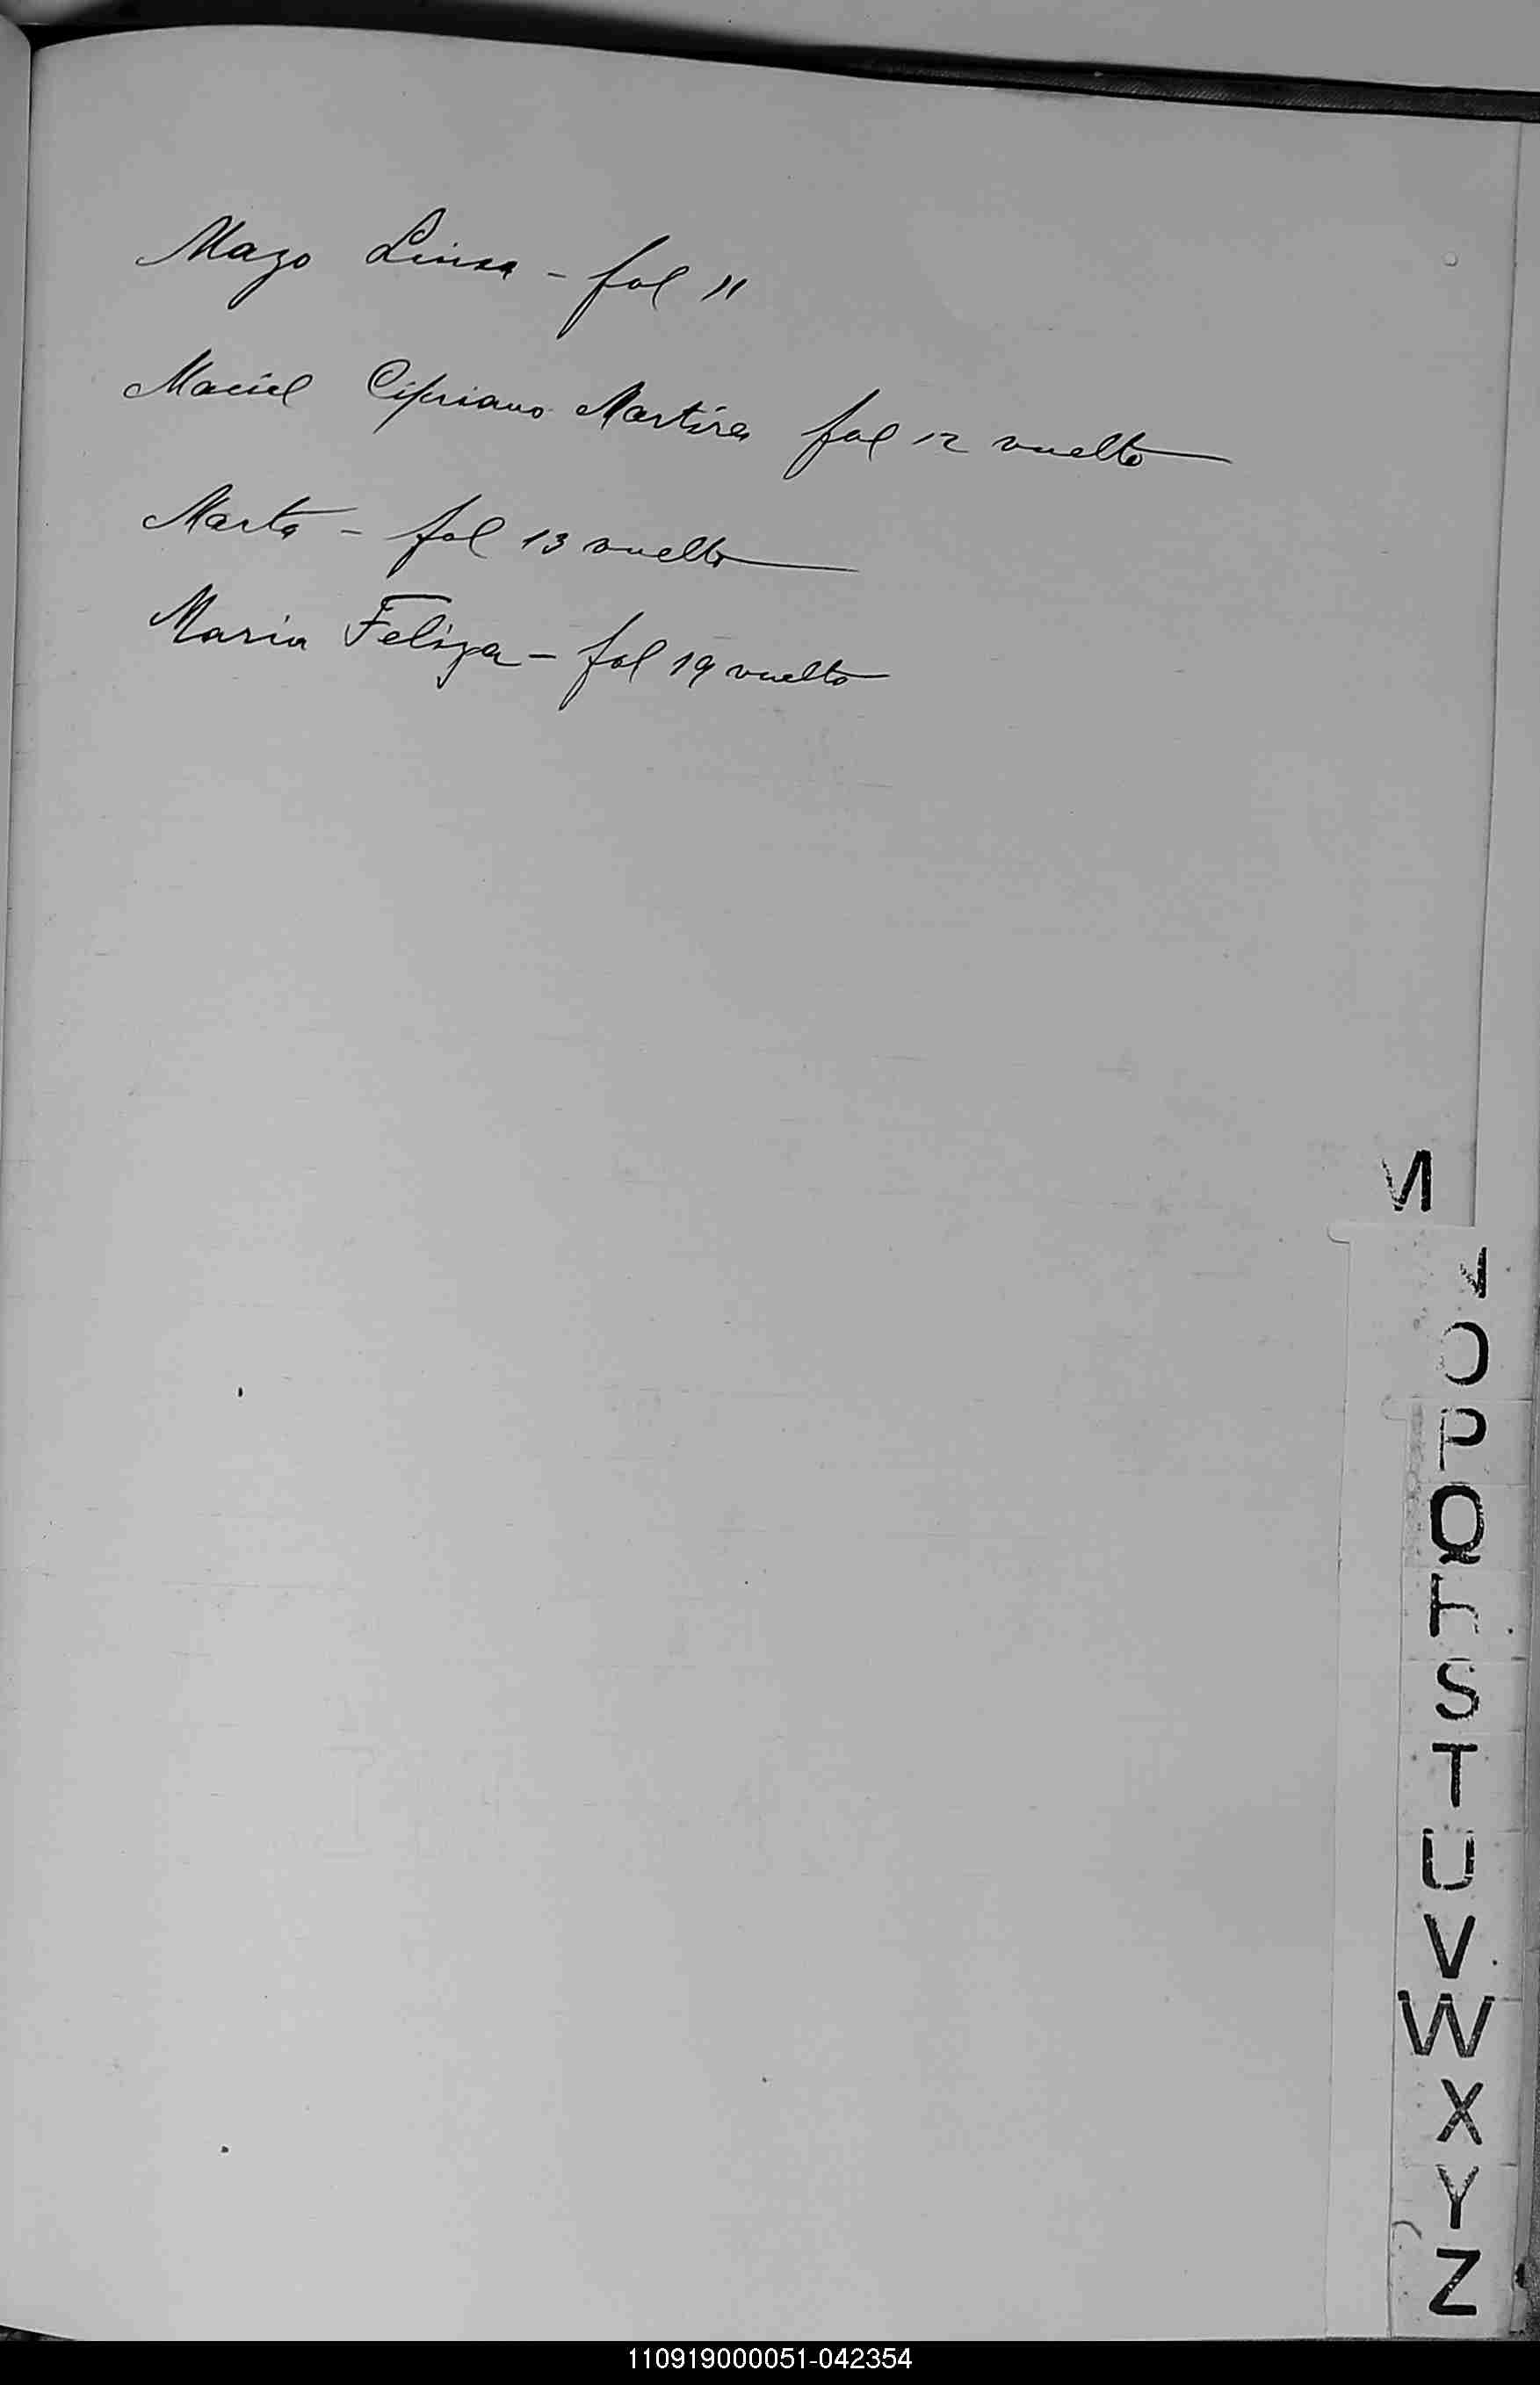 Mazo Luisa - fol 11
Maciel Cipriano Martires fol 12 vuelto
Marta - fol 13 vuelto
Maria Feliza - fol 19 vuelto
M
N
O
P
Q
R
S
T
U
V
W
X
Y
Z
110919000051-042354